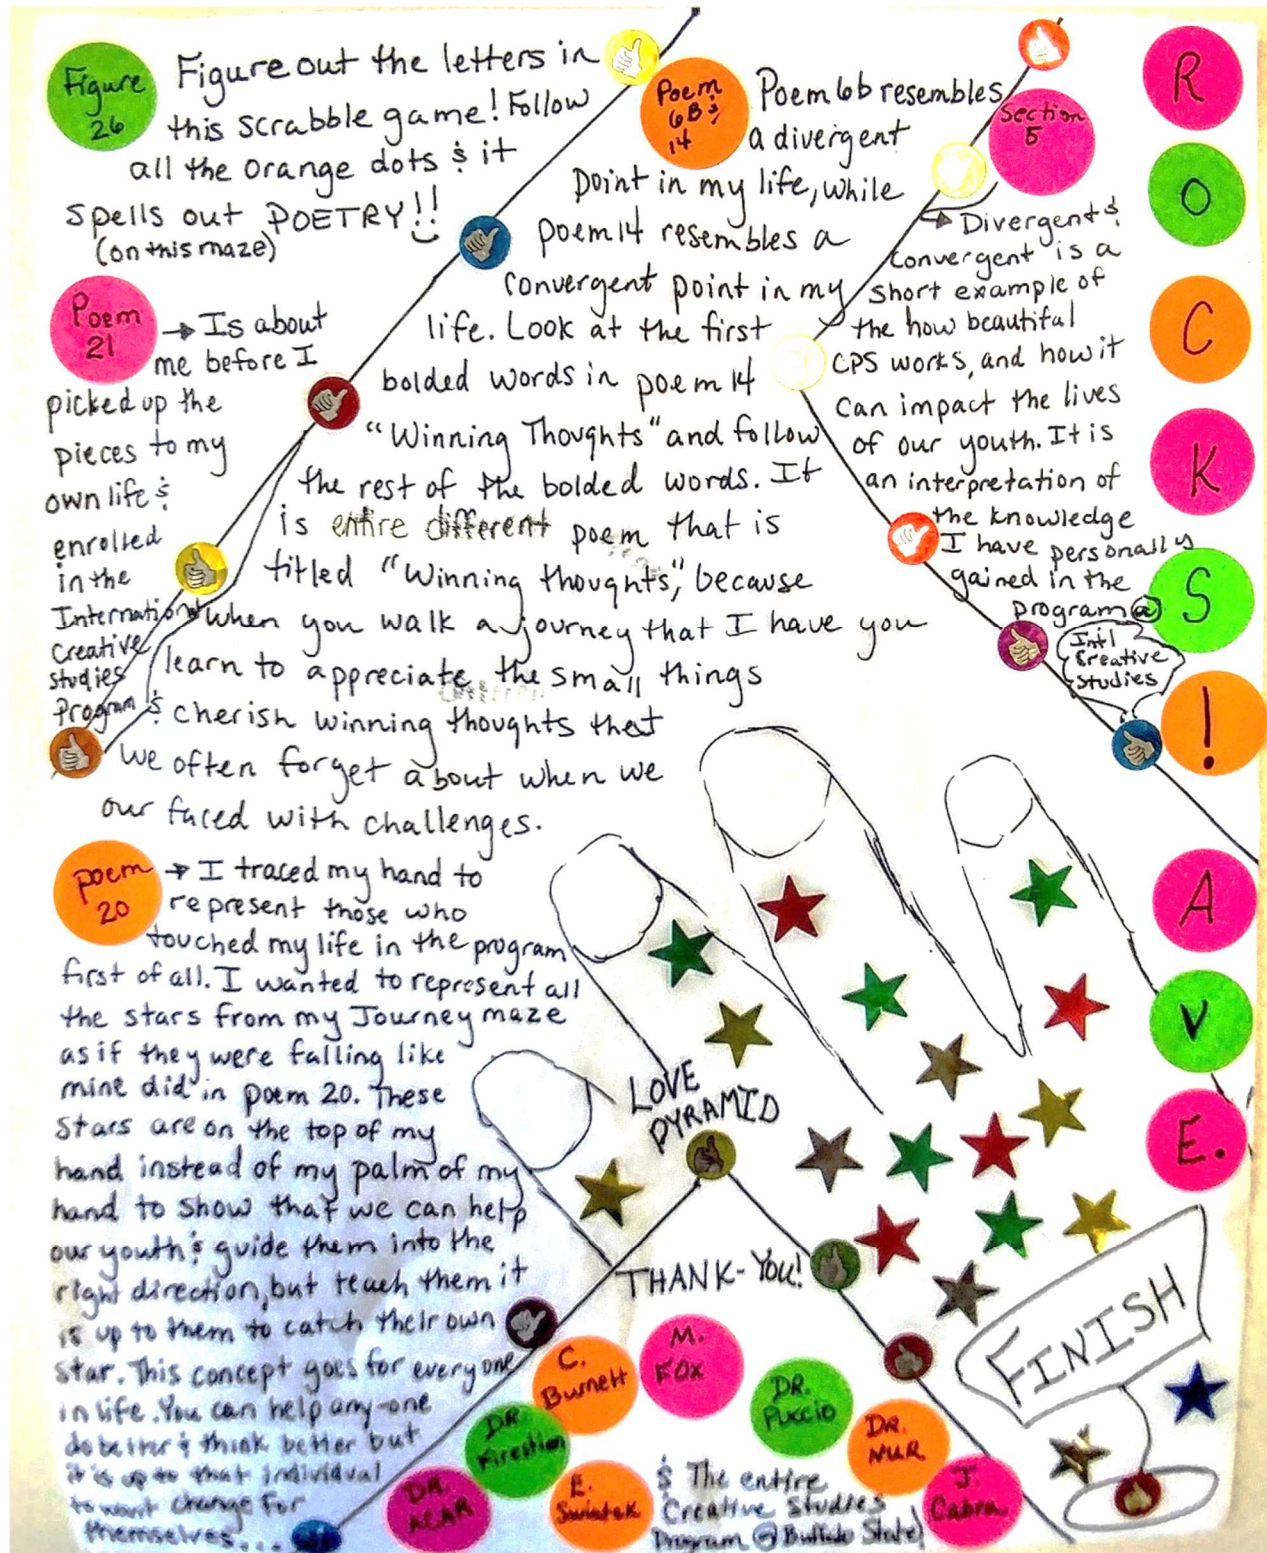 Figure
26
Figure out the letters in
this scrabble game! Follow
all the orange dots & it
spells out POETRY!!
(on this maze)
Poem
21
→ Is about
me before I
picked up the
pieces to my
own life &
enrolled
in the
International
Creative
Studies
Program &
Poem
6B &
14
Poem 6b resembles
a divergent
point in my life, while
poem 14 resembles a
convergent point in my
life. Look at the first
bolded words in poem 14
"Winning Thoughts" and follow
the rest of the bolded words. It
is entire different poem that is
titled "Winning thoughts", because
when you walk a journey that I have you
learn to appreciate the small things
cherish winning thoughts that
we often forget about when we
our faced with challenges.
Section
5
→ Divergent &
convergent is a
short example of
the how beautiful
CPS works, and how it
can impact the lives
of our youth. It is
an interpretation of
the knowledge
I have personally
gained in the
program @
Int'l
Creative
Studies
R
O
C
K
S
!
poem
20
→ I traced my hand to
represent those who
touched my life in the program
first of all. I wanted to represent all
the stars from my Journey maze
as if they were falling like
mine did in poem 20. These
stars are on the top of my
hand instead of my palm of my
hand to show that we can help
our youth & guide them into the
right direction, but teach them it
is up to them to catch their own
star. This concept goes for everyone
in life. You can help any-one
do better & think better but
it is up to that individual
to want change for
themselves...
A
V
E.
LOVE
PYRAMID
THANK-YOU!
FINISH
C.
Burnett
M.
Fox
DR.
Firestien
DR.
Puccio
DR.
NUR
DR.
ACAR
E.
Swiatek
J.
Cabra
& The entire
Creative Studies
Program @ Buffalo State!